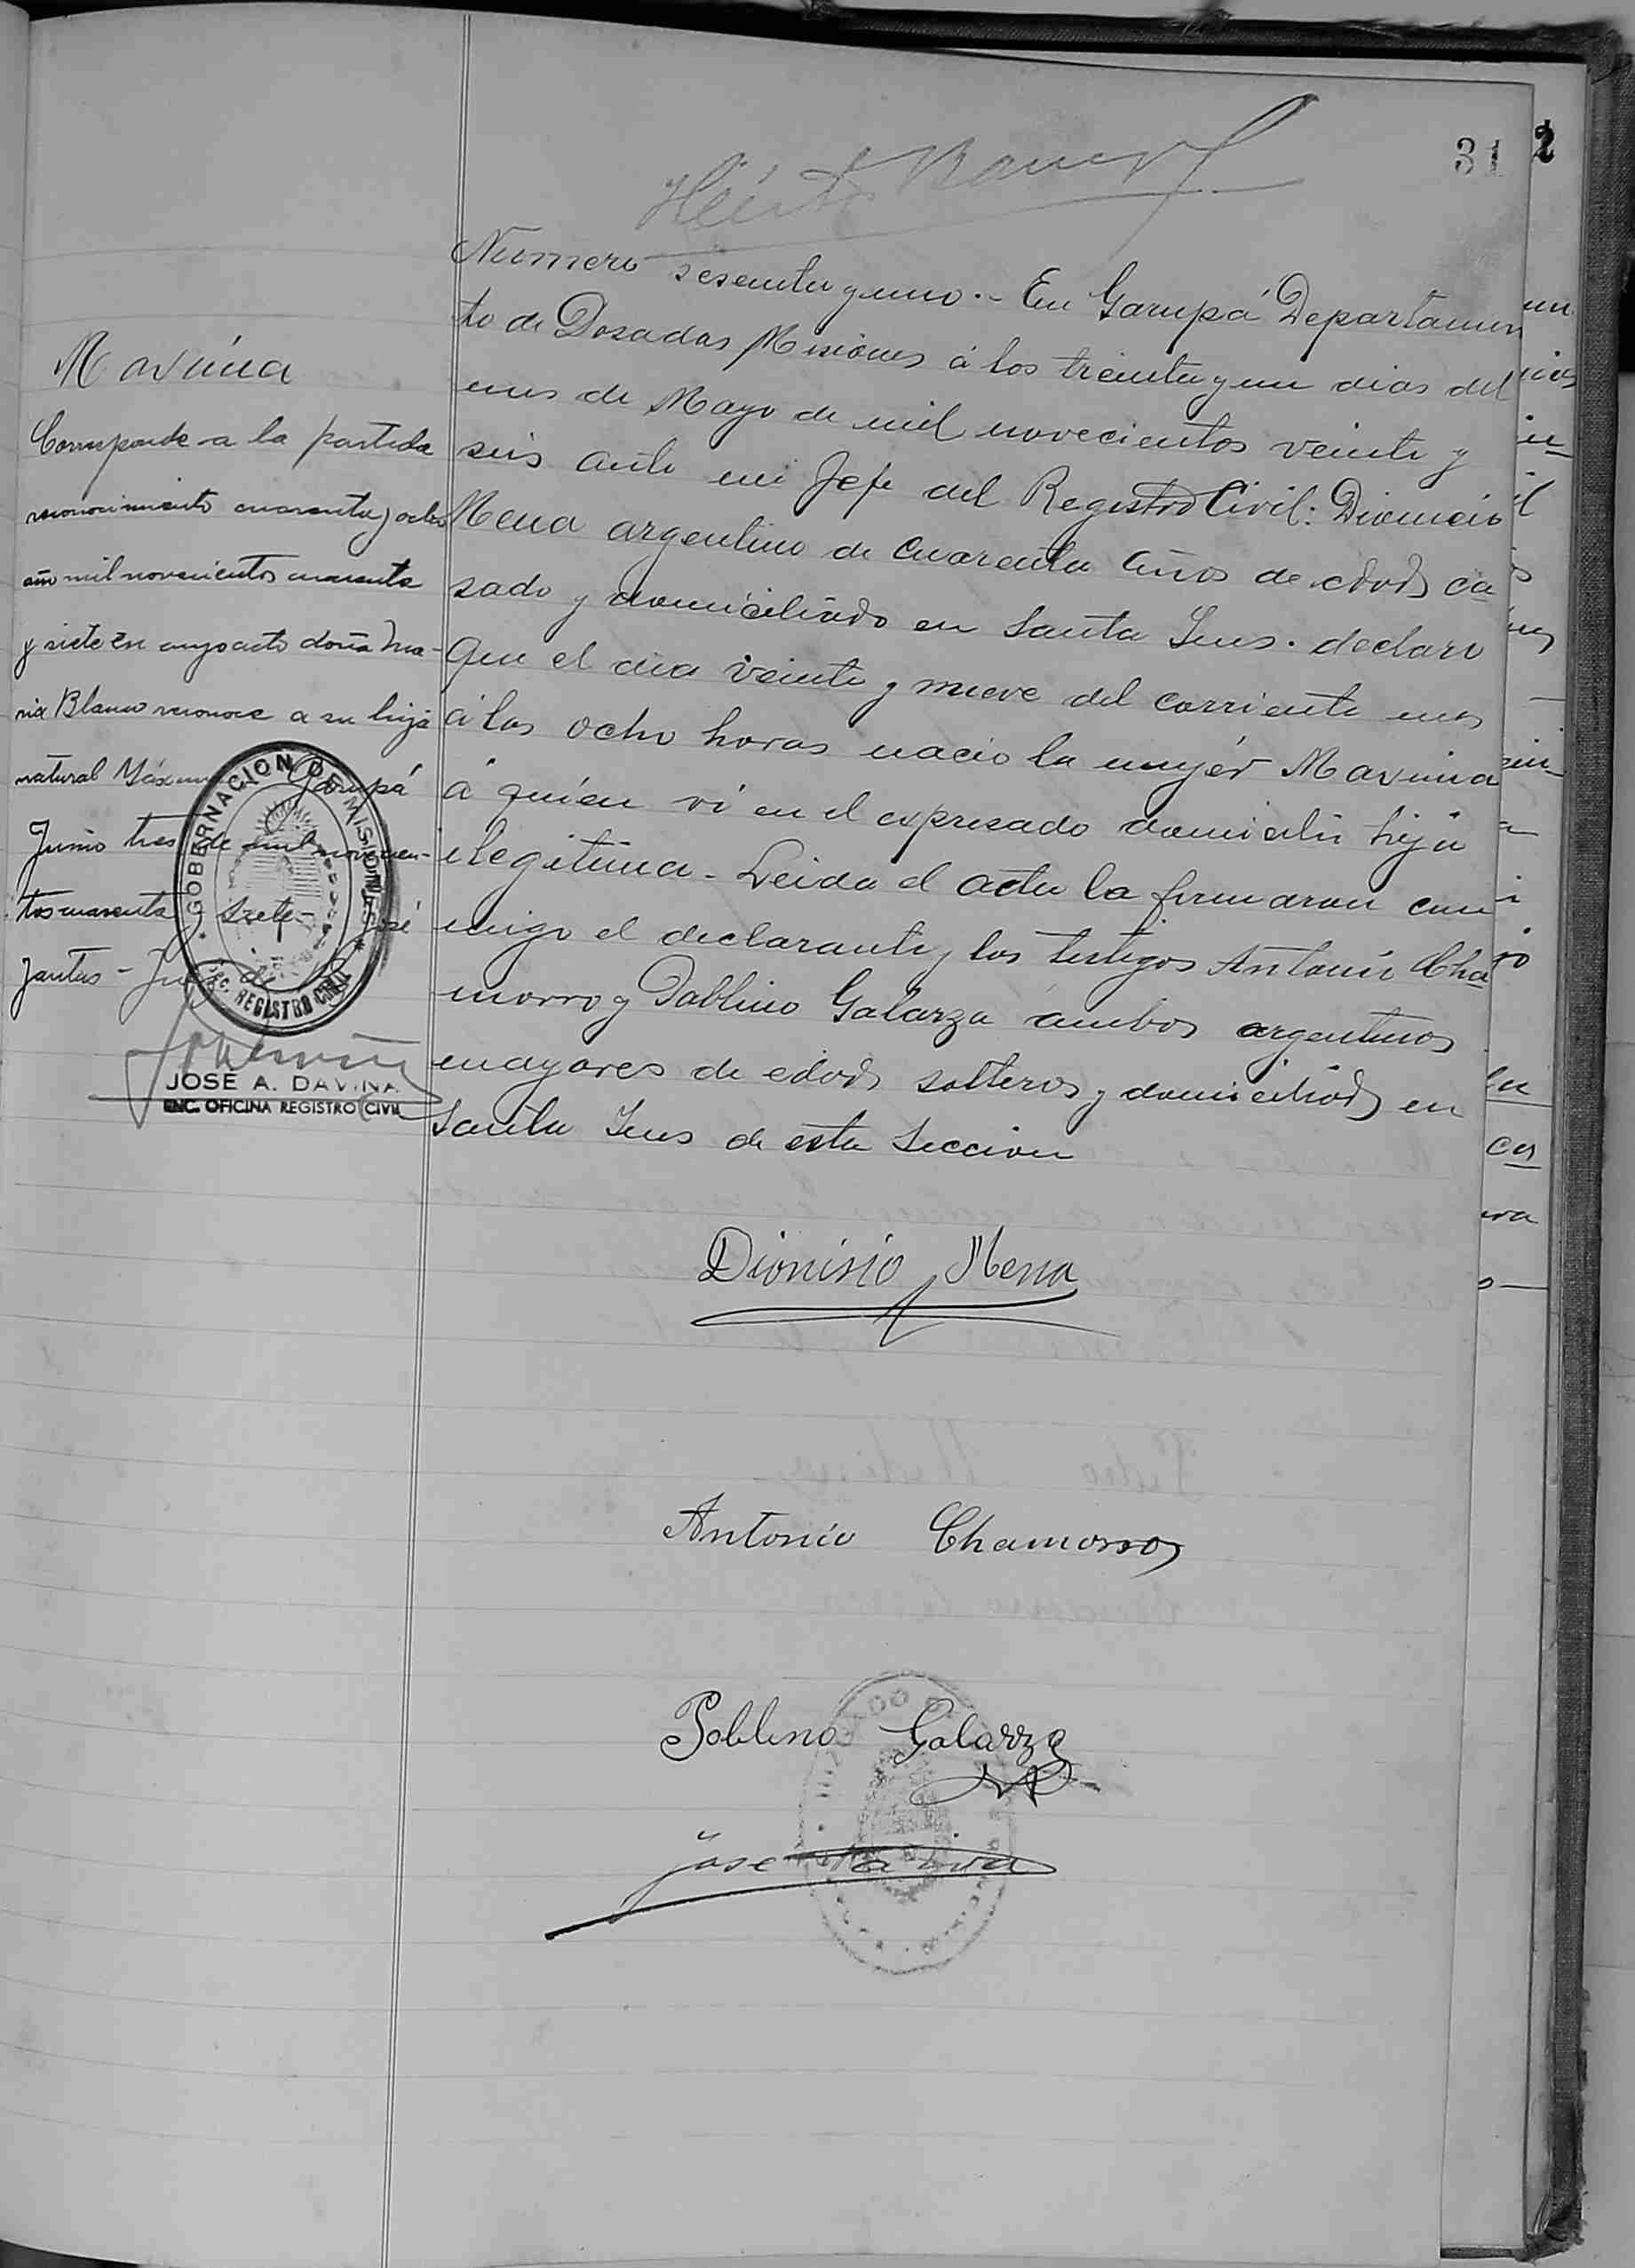 31
2
Numero sesenta y uno.- En Garupá Departamen
to de Posadas Misiones á los treinta y un dias del
mes de Mayo de mil novecientos veinte y
seis ante mi Jefe del Registro Civil: Dionicio
Mena argentino de cuarenta años de edad ca
sado y domiciliado en Santa Ines. declaro
Que el dia veinte y nueve del corriente mes
á las ocho horas nacio la mujér Maxima
á quien vi en el expresado domicilio hija
ilegitima - Leida el acta la firmaron con
migo el declarante y los testigos Antonio Cha
morro y Pablino Galarza ámbos argentinos
mayores de edad solteros y domiciliados en
Santa Ines de esta Seccion
Maxima
Corresponde a la partida
reconocimiento cuarenta y ocho
año mil novecientos cuarenta
y siete en cuyo acto doña Ma-
ria Blanco reconoce a su hija
natural Máxima Garupá
Junio tres de mil novecien-
tos cuarenta y siete - José
Juez de
GOBERNACION DE MISIONES
REGISTRO CIVIL
JOSE A. DAVIÑA
ENC. OFICINA REGISTRO CIVIL
Dionisio Mena
Antonio Chamorro
Poblino Galarza
José